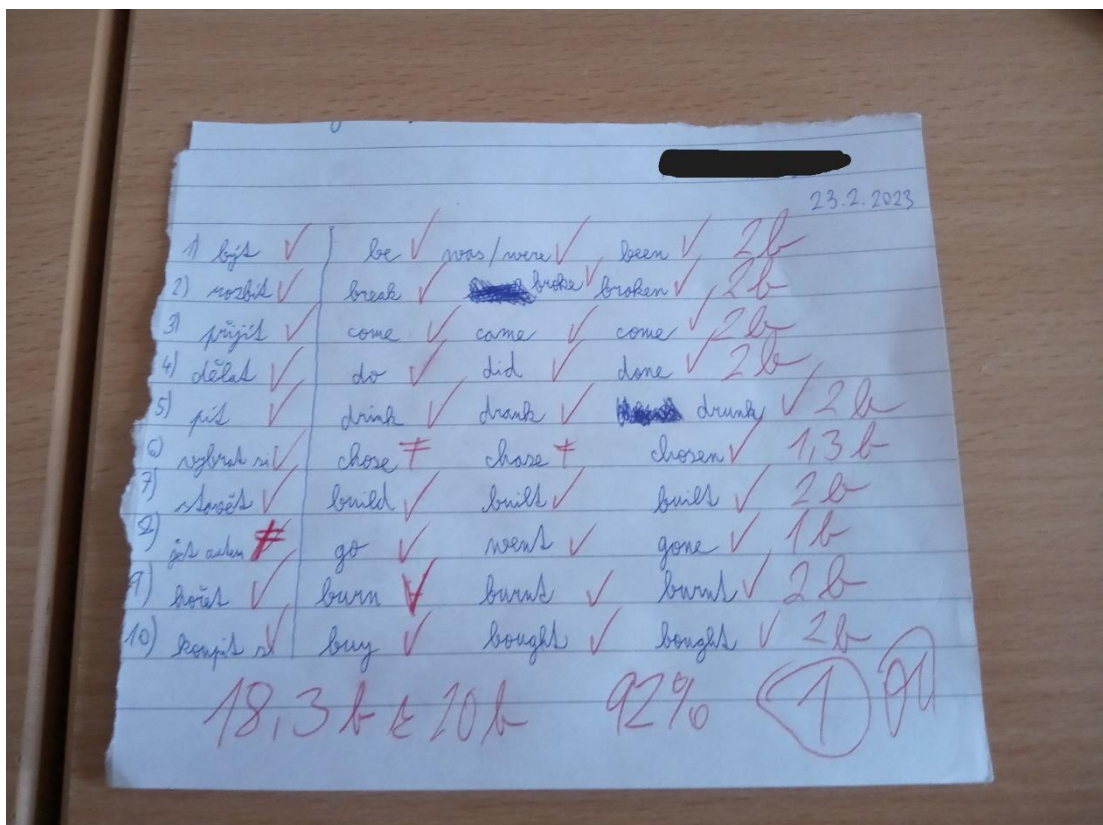 23.2.2023
1) být ✓ be ✓ was/were ✓ been ✓ 2b
2) rozbít ✓ break ✓ broke ✓ broken ✓ 2b
3) přijít ✓ come ✓ came ✓ come ✓ 2b
4) dělat ✓ do ✓ did ✓ done ✓ 2b
5) pít ✓ drink ✓ drank ✓ drunk ✓ 2b
6) vybrat si ✓ chose ≠ chase ≠ chosen ✓ 1,3b
7) stavět ✓ build ✓ built ✓ built ✓ 2b
8) jet autem ≠ go ✓ went ✓ gone ✓ 1b
9) hořet ✓ burn ✓ burnt ✓ burnt ✓ 2b
10) koupit si ✓ buy ✓ bought ✓ bought ✓ 2b
18,3b z 20b 92% 1